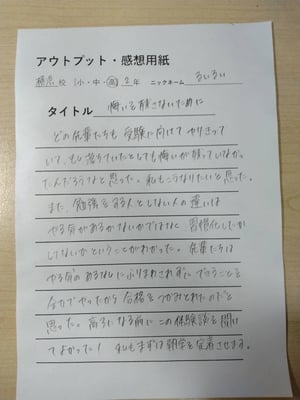 アウトプット・感想用紙
横浜校 小・中・高 2年 ニックネーム るいるい
タイトル 悔いを残さないために
どの先輩たちも受験に向けてやりきって
いて、もし落ちていたとしても悔いが残っていなかっ
たんだろうなと思った。私もこうなりたいと思った。
また、勉強をする人としない人の違いは
やる気があるかないかではなく習慣化したか
してないかということがわかった。先輩たちは
やる気のあるなしにふりまわされずに、できることを
全力でやったから合格をつかみとれたのだと
思った。高3になる前にこの体験談を聞け
てよかった! 私もまずは朝学を定着させます。